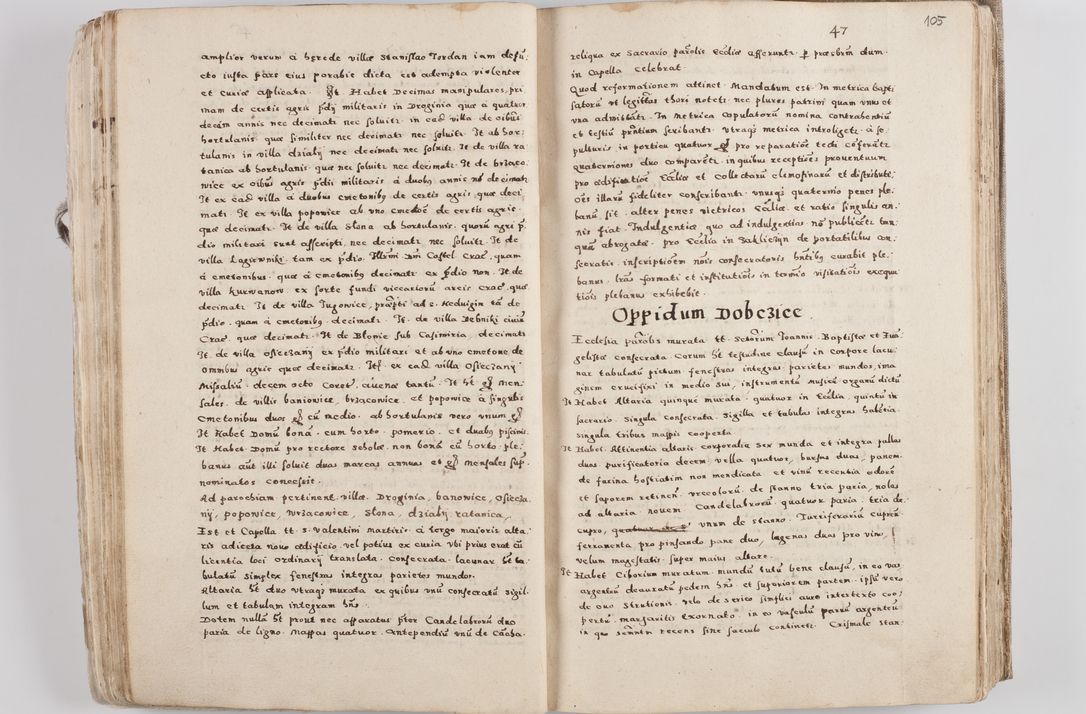 amplior verum à herede villæ Stanislao Jordan iam defũ
cto iusta pars eius parabie dicta est adempta violenter
et curiæ applicata. It Habet Decimas manipulares, pri
mam de certis agris p̃dij militaris in Droginia quæ à quatuor
decim annis nec decimati nec soluit. in ead villa de oibus
hortulanis quæ similiter nec decimati nec soluit. It ab hor:
tulanis in villa dzialij nec decimati nec soluit. It de villa ra
tanica ab hortulanis quæ nec soluit nec decimati. It de brzaco
wice ex oibus agris p̃dij militaris à duobus annis nõ decimati
It ex ead villa à duobus cmetonibus de certis agris quæ deci
mati. It ex villa popowice ab vno cmetõe de certis agris
quæ decimati. It de villa Slona ab hortulanis quorũ agri p̃
dio militari sunt asscripti, nec decimati nec soluit. It de
villa Lagiewniki tam ex p̃dio Illrmi Dni Castel. Crac. quam
à cmetonibus quæ à cmetonibus decimati ex p̃dio non. It de
villa kurwanow ex sorte fundi vicariorũ arcis Crac. quæ
decimati It de villa Jugowice, præp̃ti ad S. Heduigin tã de
p̃dio quam à cmetonibus decimati. It. de villa Debniki ciuiũ
Crac. quæ decimati. It de Blonie sub Casimiria, decimati
It de villa Osieczany ex p̃dio militari et ab vno cmetone de
omnibus agris quæ decimati. It ex ead villa Osieczany
Missaliũ decem octo Coret, auenæ tantũ. It ht gs men
sales de villis baniowice, brzaconice, et popowice à singulis
Cmetonibus duos gs cũ medio. ab hortulanis vero vnum gs
It Habet Domũ bonã cum horto pomerio, et duabus piscinis
It Habet Domũ pro rectore scholæ non bonã cũ horto. ple:
banus aũt illi soluit duas marcas annuas et gs mensales sup̃.
nominatos concessit.
Ad parochiam pertinent villæ. Droginia, banowice, Osiecza
nij, popowice, Wrzacowice, Slona, dzialij ratanica,
Est et Capella tt. S. Valentini Martiris à tergo maioris alta
ris adiecta nouo ædificio vel potius ex curia vbi prius erat cũ
licentia loci ordinarij translata. Consecrata. lacunar ht ta
bulatũ simplex fenestras integras parietes mundos.
Altaria ht duo vtraque murata ex quibus vnũ consecratũ sigil
lum et tabulam integram hñs.
Dotem nullã ht prout nec apparatus p̃ter Candelabrorũ duo
paria de ligno. Mappas quatuor. Antependiũ vnũ de Cãcha.
47
105
reliqua ex Sacrario parõlis Ecclæ afferuntr p præsbrm dum
in Capella celebrat
Quod reformationem attinet. Mandatum est. In metrica bapti
satorũ vt legittus thori notetr nec plures patrini quam vnus et
vna admittatr. In metrica Copulatorũ nomina contrahentiũ
et testiũ pr̃ntium scribantr. vtraque metrica introligetr. à se
pulturis in porticu quatuor gs pro reparatiõe tecti cõferãtr
quaterniones duo comparẽtr in quibus receptiões prouentuum
pro ædificatiõe Ecclæ et collectarũ elemosinarũ et distributæ
oẽs illarũ fideliter conscribantr. vnusque quaternio penes ple:
banũ sit. alter penes victricos Ecclæ. et ratio singulis an:
nis fiat. Indulgentiæ, quo ad indulgentias nõ publicetr tan:
quã abrogatæ. pro Ecclia in Zakliczyn de portatilibus con
secratis inscriptiõem nõis consecratoris hñtibus curabit ple:
banus. lrãs formati et institutiõis in termio visitatiõis exequi
tiõis plebanus exhibebit.
Oppidum Dobczice
Ecclesia parõlis murata tt. Sctõrum Ioannis Baptistæ et Iuã
gelistæ consecrata. Corum ht testudine clausũ in corpore lacu:
nar tabulatũ pictum fenestras integras parietes mundos, ima
ginem crucifixi in medio sui, instrumentũ musicæ organũ dictũ
It Habet Altaria quinque murata quatuor in Ecclia, quintũ in
sacrario. singula consecrata. sigilla et tabulas integras habẽtia.
singula tribus mappis cooperta
It Habet. Attinentia altaris corporalia sex munda et integra pallas
duas purificatoria decem. vella quatuor, bursas duas, panem
de farina hostiatim non mendicata et vinũ recentia odorẽ
et saporem retinẽ. vrceolorũ de stanno tria paria, nolas
ad altaria nouem. Candelabrorũ quatuor paria. tria de
cupro, vnum de stanno. Turriferariũ cupreũ
ferramenta pro pinsando pane duo, lagenas duas pro vino,
velum magestatis super maius altare.
It Habet Ciborium muratum mundũ tutũ bene clausũ, in eo vas
argenteũ deauratũ pedem hñs et superiorem partem. ipsũ vero
de ouo Strutionis. velo de serico simplici auro intertexto coo:
pertũ. margaritis Exornato. in eo vasculũ paruũ argenteũ
in quo scm̃tm recens sine sacculo continetr. Crismale Stan: